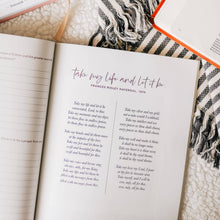 take my life and let it be
FRANCES RIDLEY HAVERGAL, 1874
Take my life and let it be
consecrated, Lord, to thee.
Take my moments and my days;
let them flow in endless praise,
let them flow in endless praise.
Take my hands and let them move
at the impulse of thy love.
Take my feet and let them be
swift and beautiful for thee,
swift and beautiful for thee.
Take my voice and let me sing
always, only, for my King.
Take my lips and let them be
filled with messages from thee,
filled with messages from thee.
Take my silver and my gold;
not a mite would I withhold.
Take my intellect and use
every power as thou shalt choose,
every power as thou shalt choose.
Take my will and make it thine;
it shall be no longer mine.
Take my heart it is thine own;
it shall be thy royal throne,
it shall be thy royal throne.
Take my love; my Lord, I pour
at thy feet its treasure store.
Take myself, and I will be
ever, only, all for thee,
ever, only, all for thee.